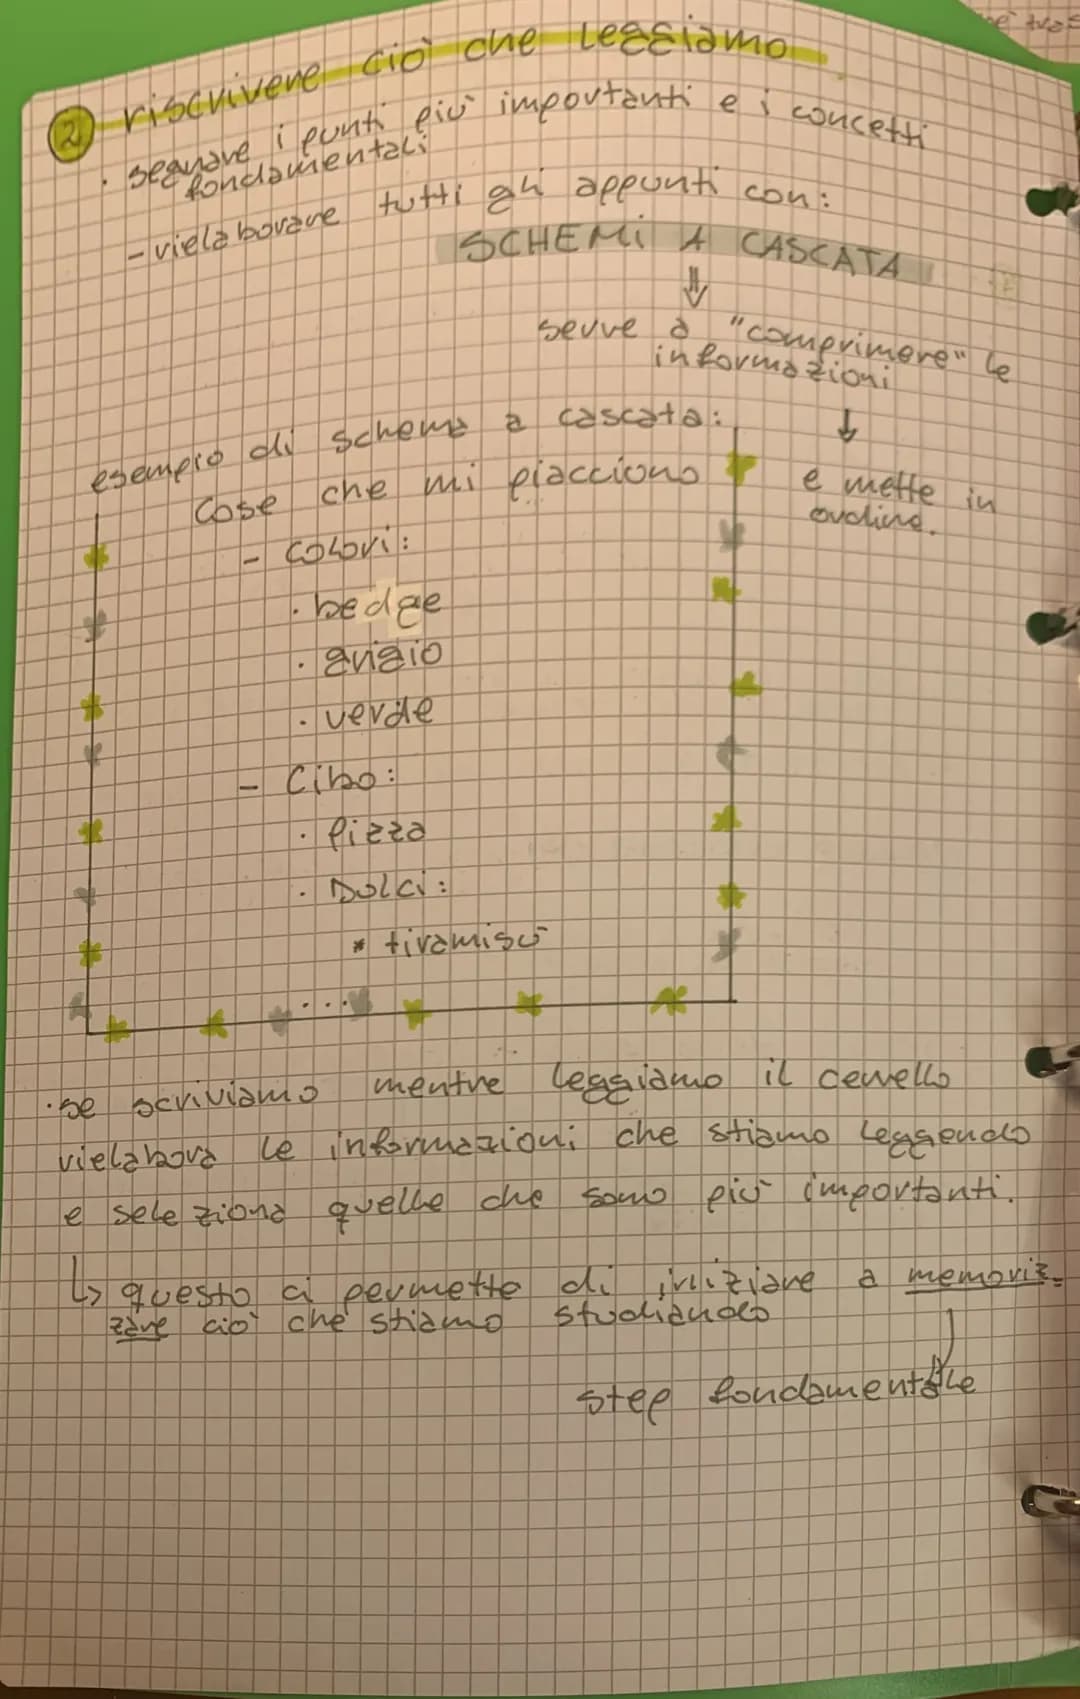 ② riscrivere ciò che leggiamo
· segnare i punti più importanti e i concetti
fondamentali
- rielaborare tutti gli appunti con:
SCHEMI A CASCATA
⇓
serve a "comprimere" le
informazioni
↓
e mette in
ordine.
esempio di schema a cascata:
Cose che mi piacciono
- COLORI:
· bedge
· grigio
· verde
- Cibo:
· Pizza
· DOLCI:
* tiramisù
...
· se scriviamo mentre leggiamo il cervello
rielabora le informazioni che stiamo leggendo
e seleziona quelle che sono più importanti.
↳ questo ci permette di iniziare a memoriz-
zare ciò che stiamo studiando
step fondamentale